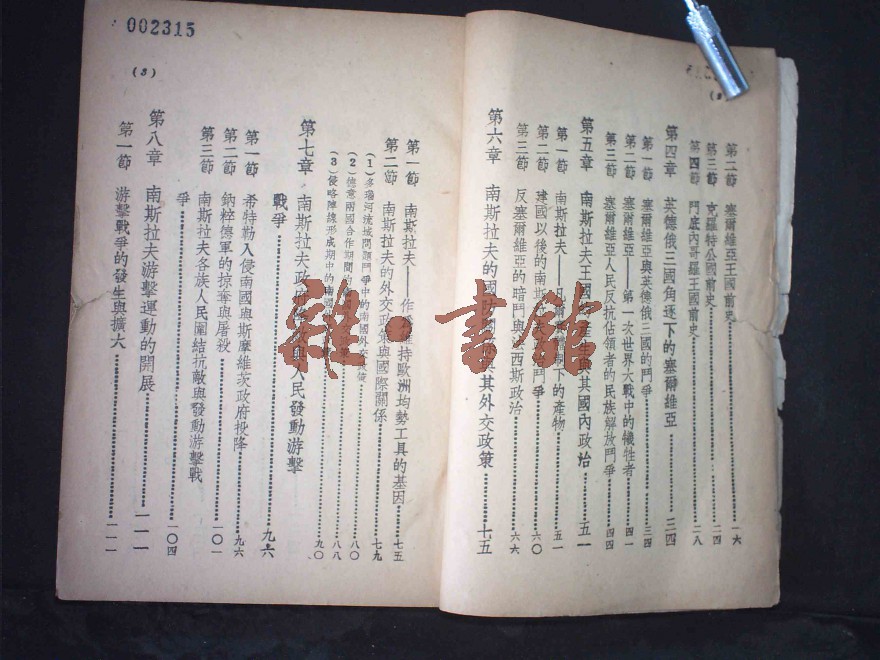 第二節 塞爾維亞王國前史……一六
第三節 克羅特公國前史……二四
第四節 門底內哥羅王國前史……二八
第四章 英德俄三國角逐下的塞爾維亞……三四
第一節 塞爾維亞與英德俄三國的鬥爭……三四
第二節 塞爾維亞——第一次世界大戰中的犧牲者……四一
第三節 塞爾維亞人民反抗佔領者的民族解放鬥爭……四四
第五章 南斯拉夫王國的產生與其國內政治……五一
第一節 南斯拉夫——凡爾賽體制下的產物……五一
第二節 建國以後的南斯拉夫 鬥爭……六〇
第三節 反塞爾維亞的暗鬥與法西斯政治……六六
第六章 南斯拉夫的國防 與其外交政策……七五
002315
(3)
第一節 南斯拉夫——作為維持歐洲均勢工具的基因……七五
第二節 南斯拉夫的外交政策與國際關係……七九
(1)多瑙河流域問題鬥爭中的南國外交政策……八〇
(2)德意兩國合作期間的……八八
(3)侵略陣線形成期中的南國……九〇
第七章 南斯拉夫政府 與人民發動游擊
戰爭……九六
第一節 希特勒入侵南國與斯摩維茨政府投降……九六
第二節 納粹德軍的掠奪與屠殺……一〇一
第三節 南斯拉夫各族人民團結抗敵與發動游擊戰
爭……一〇四
第八章 南斯拉夫游擊運動的開展……一一一
第一節 游擊戰爭的發生與擴大……一一一
雜·書館